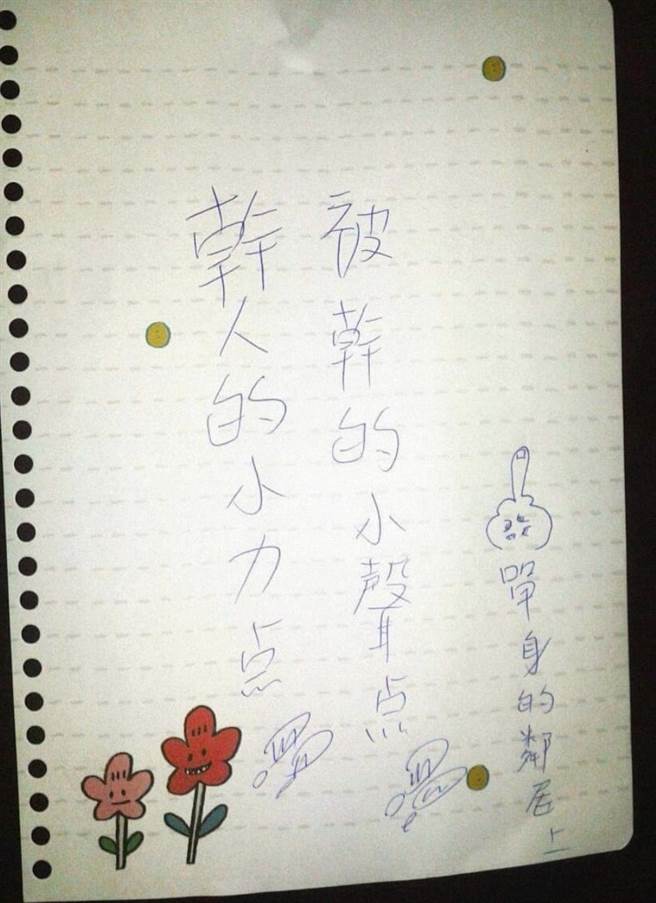 幹人的小力点
被幹的小聲点
單身的鄰居上